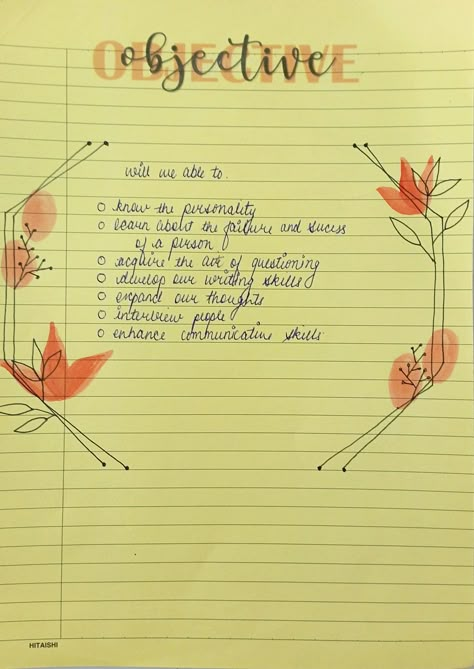 OBJECTIVE
objective
will we able to.
know the personality
learn about the failure and sucess
of a person
acquire the art of questioning
develop our writing skills
expand our thoughts
interview people
enhance communicative skills
HITAISHI